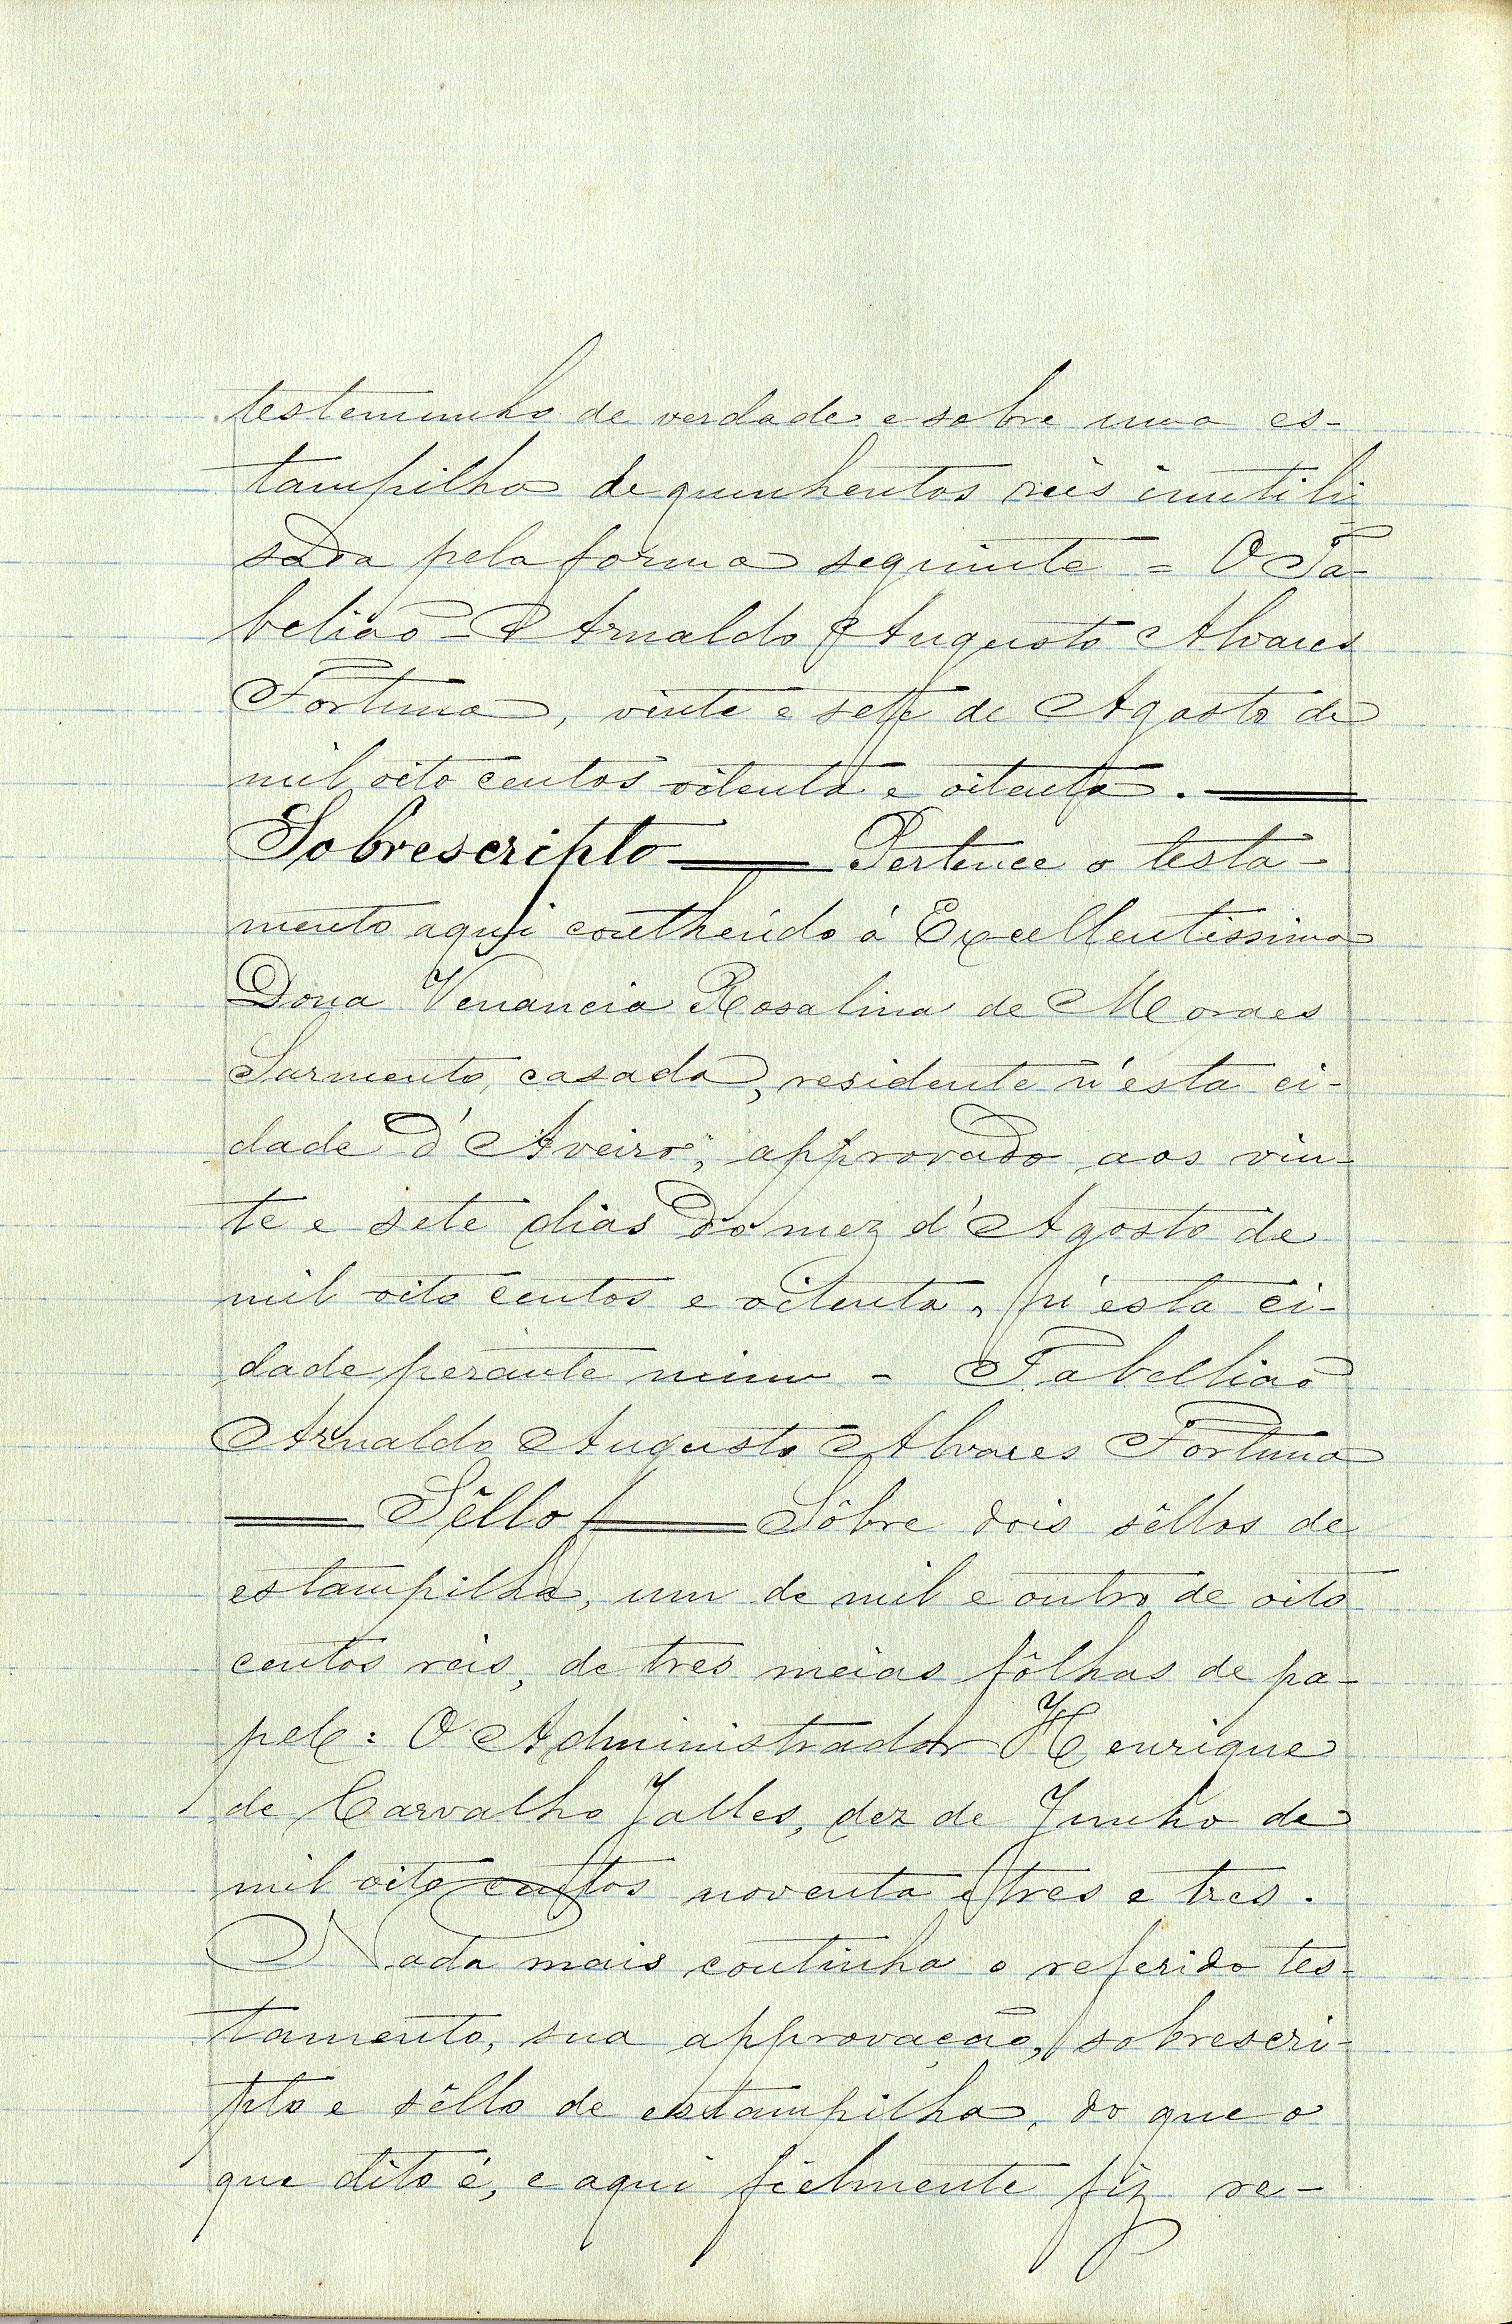 testemunho de verdade e sobre uma es-
tampilha de quinhentos réis inutili-
sada pela forma seguinte = O Ta-
belião - Arnaldo Augusto Alvares
Fortuna, vinte e sete de Agosto de
mil oito centos oitenta e oitenta.
Sobrescripto Pertence o testa-
mento aqui conthehido á Excellentissima
Dona Venancia Rosalina de Moraes
Sarmento, casada, residente n'esta ci-
dade d'Aveiro, approvado aos vin-
te e sete dias do mez d'Agosto de
mil oito centos e oitenta, n'esta ci-
dade perante mim - Tabellião
Arnaldo Augusto Alvares Fortuna
Sêllo Sôbre dois sêllos de
estampilha, um de mil e outro de oito
centos reis, de tres meias fôlhas de pa-
pel: O Administrador Henrique
de Carvalho Jalles, dez de Junho de
mil oito centos noventa e tres e tres.
Nada mais continha o referido tes-
tamento, sua approvação, sobrescri-
pto e sêllo de estampilha, do que o
que dito é, e aqui fielmente fiz re-